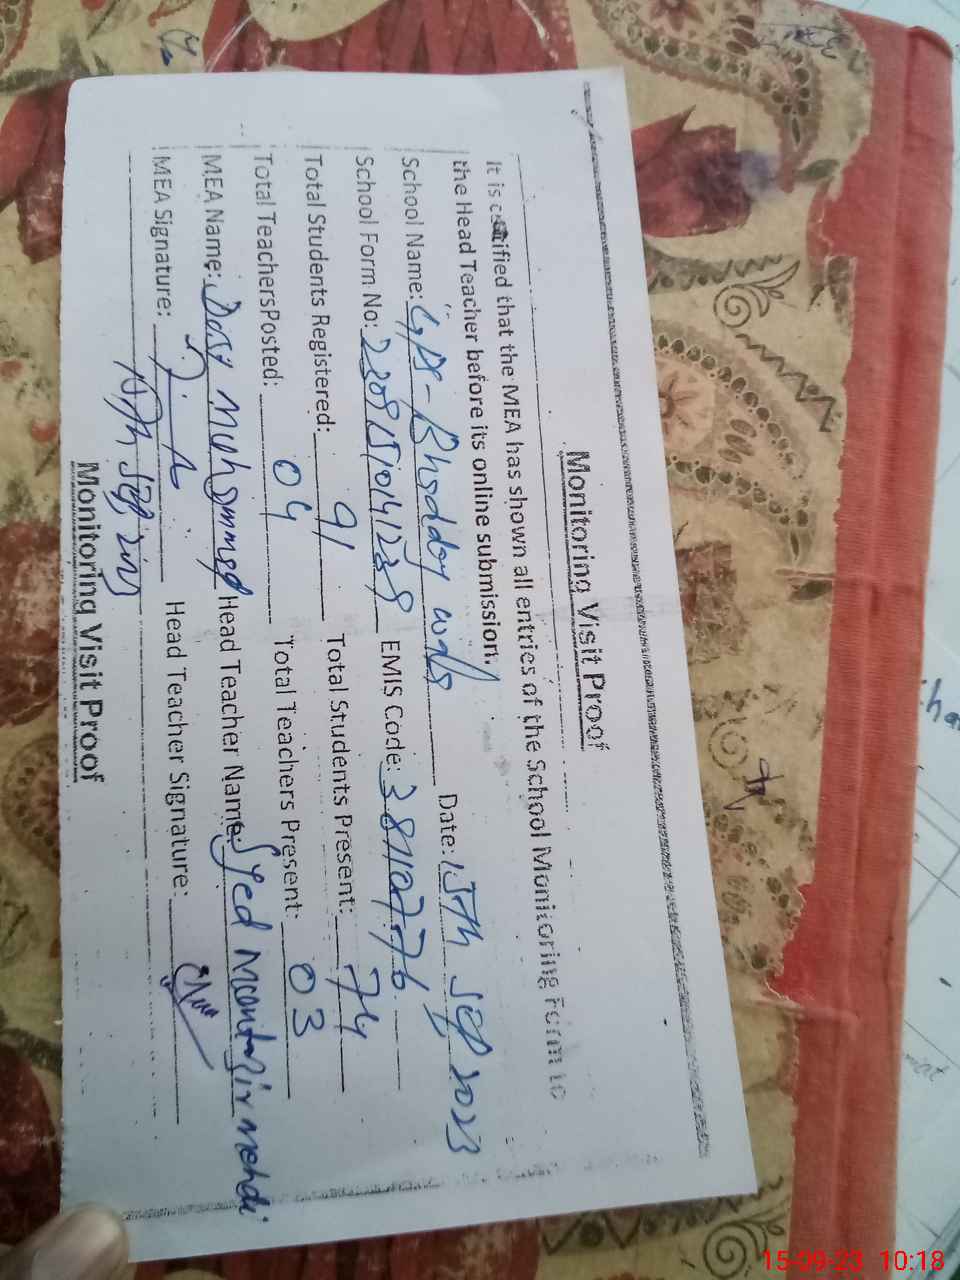 Monitoring Visit Proof
It is certified that the MEA has shown all entries of the School Monitoring Form to
the Head Teacher before its online submission.
School Name: GPS - Bhedday wala Date: 15th Sep 2023
School Form No: EMIS Code: 38112776
Total Students Registered: 91 Total Students Present: 74
Total TeachersPosted: 04 Total Teachers Present: 03
MEA Name: Dost Muhammad Head Teacher Name: Syed Montazir Mehdi
MEA Signature: Head Teacher Signature:
15th Sep 2023
Monitoring Visit Proof
15-09-23 10:18